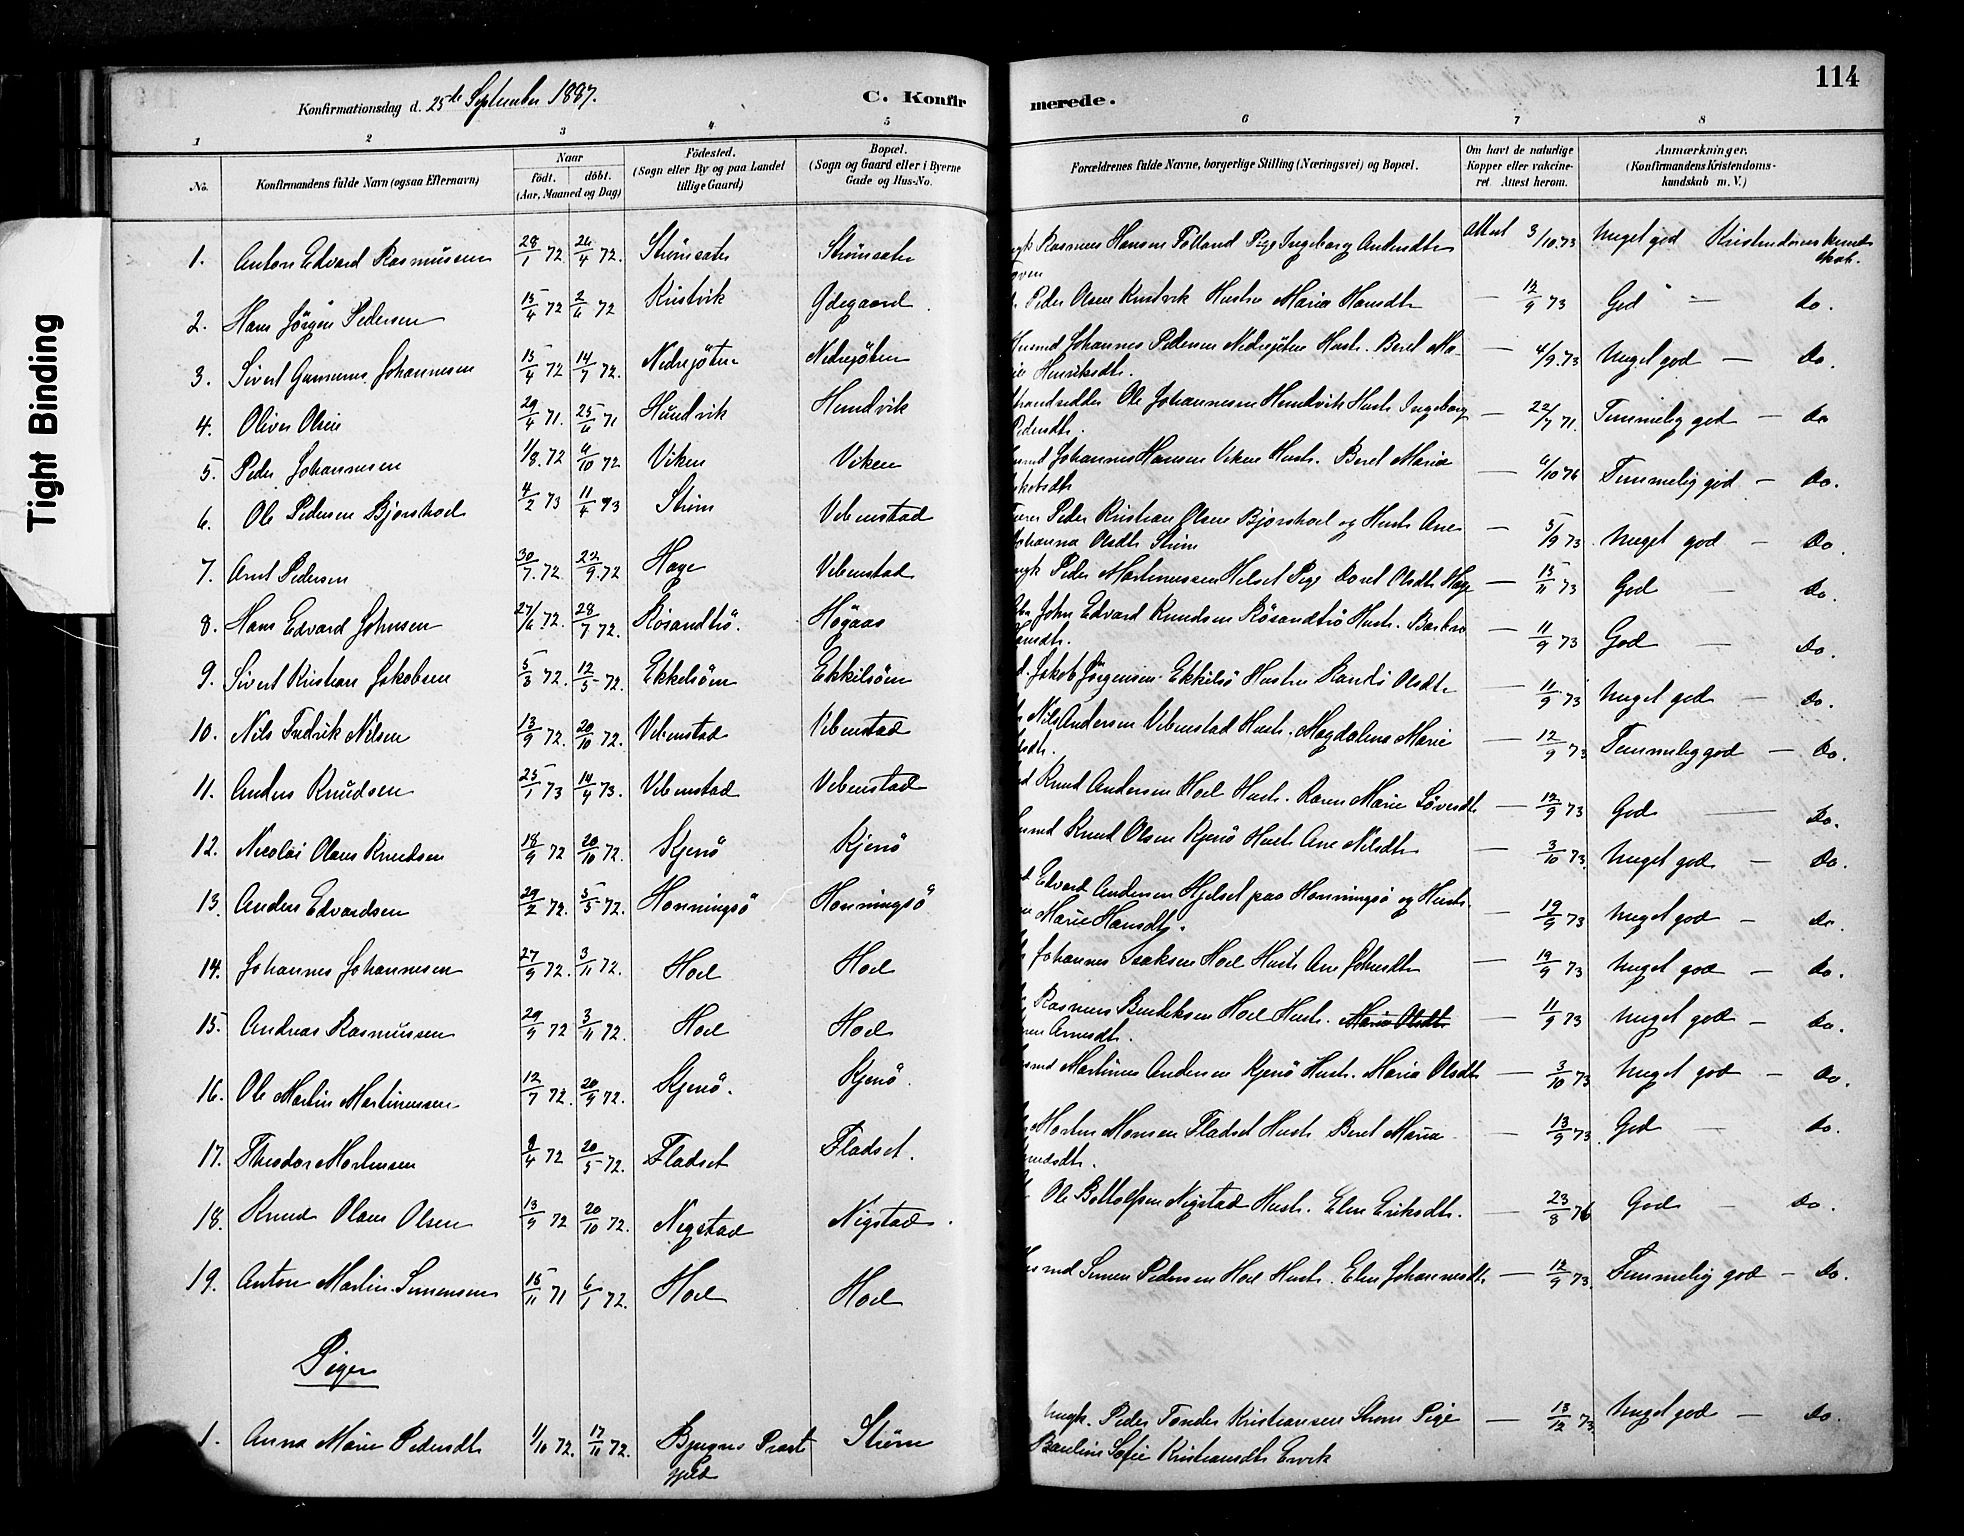 Tight Binding
114
Konfirmationsdag d. 25de September 1887.
C. Konfirmerede.
1 2 3 4 5 6 7 8
No. Konfirmandens fulde Navn (ogsaa Efternavn) Naar født. døbt. (Aar, Maaned og Dag) Fødested. (Sogn eller By og paa Landet tillige Gaard) Bopæl. (Sogn og Gaard eller i Byerne Gade og Hus-No. Forældrenes fulde Navne, borgerlige Stilling (Næringsvei) og Bopæl. Om havt de naturlige Kopper eller vakcineret. Attest herom. Anmærkninger. (Konfirmandens Kristendomskundskab m. V.)
1. Anton Edvard Rasmussen 28/1 72. 24/4 72. Rasmus Hansen Pige Ingeborg Andersdtr Attest 3/10.73 Meget god Kristendomskundskab.
2. Hans Jörgen Pedersen 15/4 72 2/6 72 Kristvik Ödegaard Peder Olsen Kristvik Hustru Maria Hansdtr — 12/9 73 God — Do.
3. Sivert Johannesen 15/4 72 14/7 72. Johannes Pedersen Hustr. Beret Marie Henriksdtr. — 4/9.73 Meget god — Do.
4. Oliver Olsen 29/4 71. 25/6 71 Hundvik Hundvik Strandsidder Ole Johannesen Hundvik Hustr Ingeborg Pedersdtr. — 22/7 71. Temmelig god — Do
5. Peder Johannesen 1/8.72 10 72 Viken Viken Johannes Hansen Viken Hustr. Beret Maria — Temmelig god — Do.
6. Ole Pedersen 4/2 73 11/4 73 Ström Vebenstad Peder Kristian Olsen og Hustr Ane Johanna Olsdtr Ström — 5/9 73 Meget god — Do.
7. Arnt Pedersen 30/7.72 22/9.72 Hage Vebenstad Peder Martinussen Helset Pige Olsdtr Hage — 15/11 73 God — Do.
8. Hans Edvard Johnsen 27/6.72. 28/7 72. Rösandtrö. Högaas John Edvard Knudsen Rösandtrö Hustr. Barbro — 11/9 73 God — Do.
9. Sivert Kristian Jakobsen 5/3 72. 12/5 72. Ekkelsöen Ekkilsöen Jakob Jörgensen Ekkilsö Hustru Randi Olsdtr — 11/9 73 Meget god — Do.
10. Nils Fredrik Nilsen 13/9 72. 20/10 72. Vebenstad Vebenstad Nils Andersen Vebenstad Hustr. Magdalena Marie — 12/9 73 Temmelig god — Do.
11. Anders Knudsen 25/1 73 14/4 73. Vebenstad Vebenstad Knud Andersen Hoel Hustr. Karen Marie — 12/9 73 God — Do.
12. Nicolai Olaus Knudsen 18/9 72 20/10 72. Kjenö Kjenö Knud Olsen Kjenö Hustr Ane Nilsdtr — 3/10 73. Meget god — Do.
13. Anders Edvardsen 29/2 72. 5/5 72. Honningsö Honningsö Edvard Andersen Hjelset paa Honningsö og Hustr. Marie Hansdtr. — 19/9 73 Meget god — Do.
14. Johannes Johannesen 27/9 72. 3/11 72. Hoel Hoel Johannes Isaksen Hoel Hustr Ane Johnsdtr — 19/9 73 Meget god — Do.
15. Andreas Rasmussen 29/9 72 3/11 72. Hoel Hoel Rasmus Hoel Hustr. Maria Olsdtr Arnesdtr. — 11/9 73 Meget god — Do.
16. Ole Martin Martinussen 12/7 72. 20/9 72. Kjenö. Kjenö. Martinus Andersen Kjenö Hustr. Maria Olsdtr — 3/10 73 Meget god — Do.
17. Theodor Mortensen 9/4 72 20/5 72. Fladset Fladset. Morten Monsen Fladset Hustr. Beret Maria — 13/9 73. God — Do.
18. Knud Olaus Olsen 13/9 72 20/10 72. Nigstad Nigstad. Ole Nigstad Hustr. Elen Eriksdtr. — 23/8 76 God — Do.
19. Anton Martin Simensen 15/11 71 6/1 72. Hoel Hoel Simen Pedersen Hoel Hustr. Elen Johannesdtr — 12/9 73. Temmelig god — Do.
Piger
1. Anna Marie Pedersdtr 1/10 72. 17/11 72. Bjugns Præstgjeld Ström Ungk. Peder Kristiansen Ström Pige Pauline Sofie Kristiansdtr — 13/12 73 Meget god — Do.